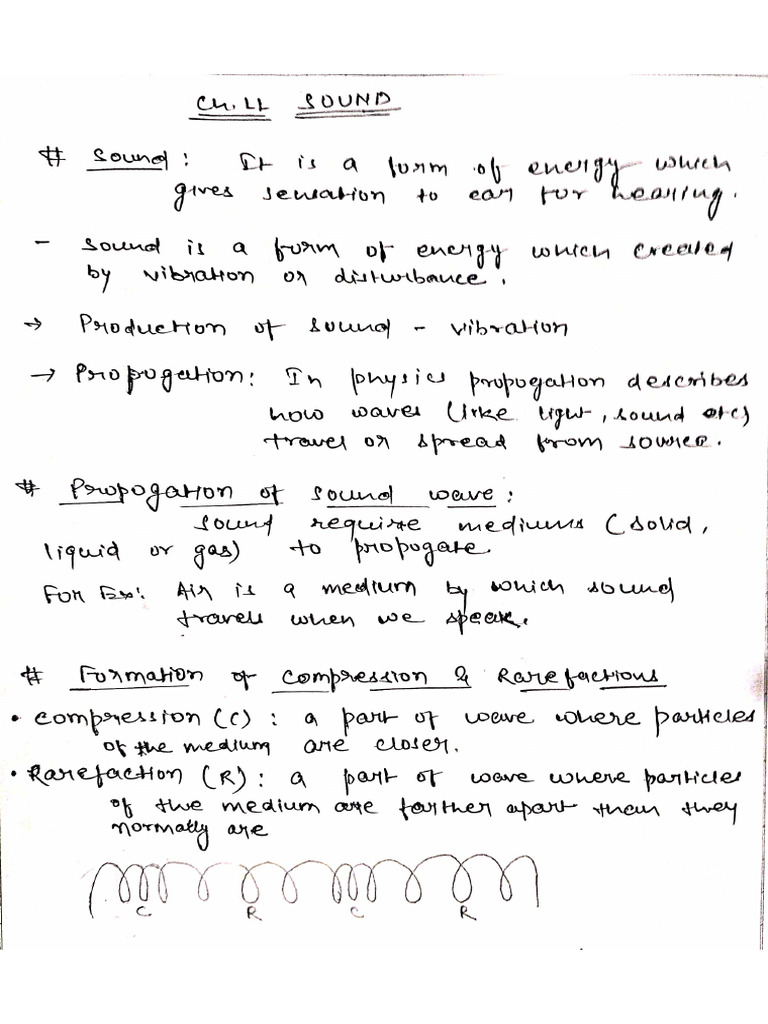 Ch.11 SOUND
# Sound: It is a form of energy which
gives sensation to ear for hearing.
- Sound is a form of energy which created
by vibration or disturbance.
→ Production of sound - vibration
→ Propogation: In physics propogation describes
how waves (like light, sound etc)
travel or spread from source.
# Propogation of sound wave:
Sound require mediums (solid,
liquid or gas) to propogate.
For Ex: Air is a medium by which sound
travels when we speak.
# Formation of Compression & Rarefactions
• Compression (C): a part of wave where particles
of the medium are closer.
• Rarefaction (R): a part of wave where particles
of the medium are farther apart than they
normally are
C R C R